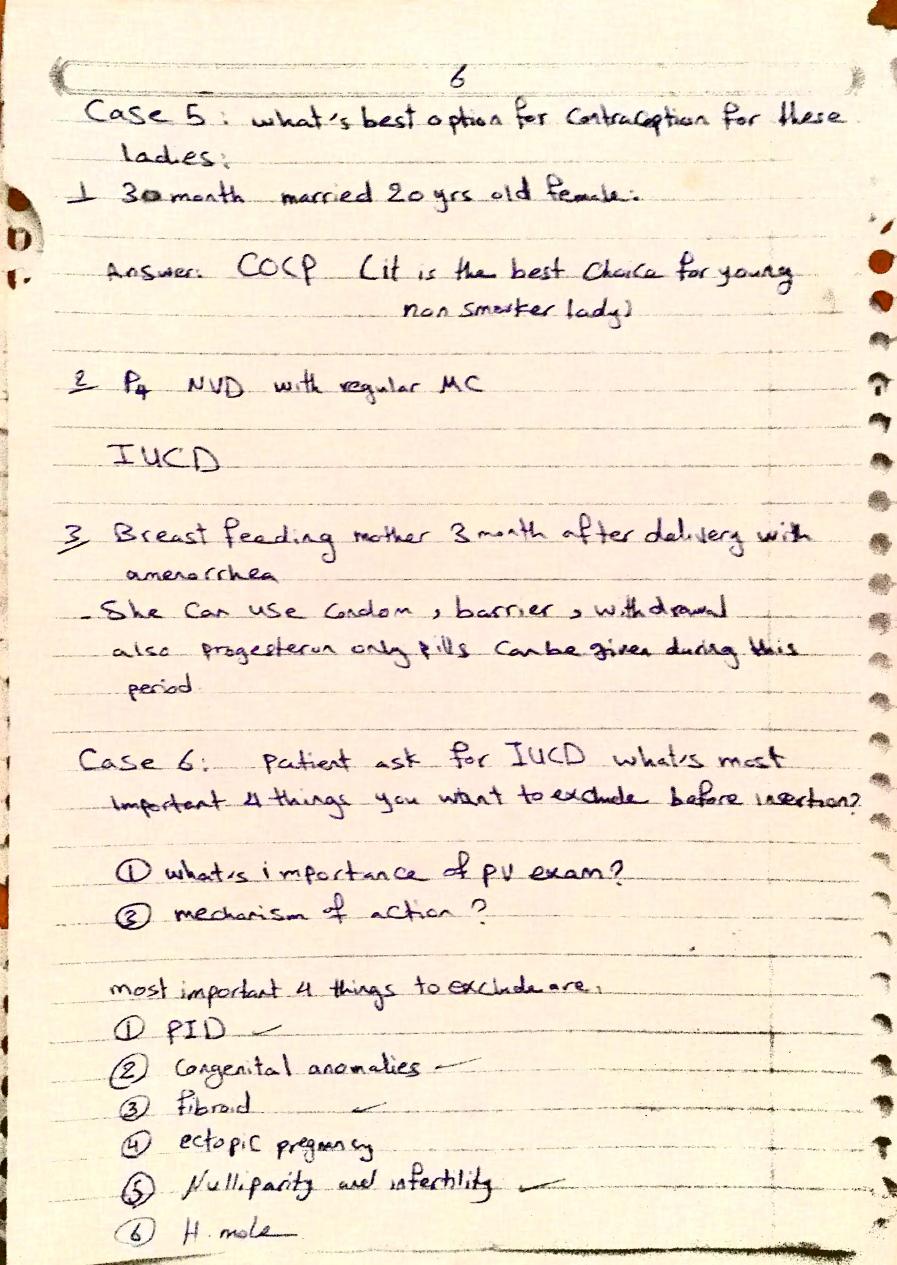 6
Case 5: what's best option for Contraception for these
ladies:
1 30 month married 20 yrs old female:
Answer: COCP (it is the best Choice for young
non smoker lady)
2 P4 NVD with regular MC
IUCD
3 Breast feeding mother 3 month after delivery with
amenorrhea
- She Can use Condom, barrier, withdrawal
also progesteron only pills Can be given during this
period.
Case 6: patient ask for IUCD what's most
important 4 things you want to exclude before insertion?
① what's importance of PV exam?
② mechanism of action?
most important 4 things to exclude are:
① PID ✓
② Congenital anomalies ✓
③ fibroid ✓
④ ectopic pregnancy
⑤ Nulliparity and infertility ✓
⑥ H. mole